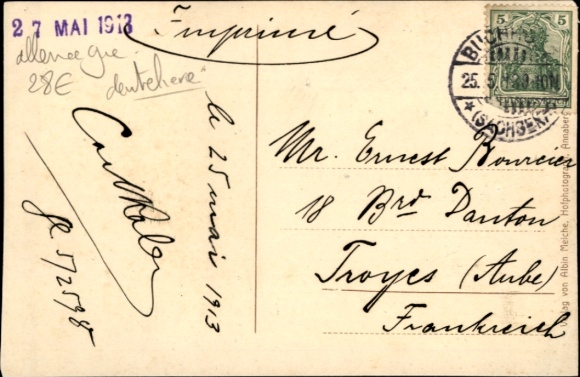 27 MAI 1913
Imprimé
allemagne
28€
deutscherei
le 25 mai 1913
Carl Raber
5/2598
5
5
25.5.13
(SACHSEN)
Mr. Ernest Bourcier
18 Brd Danton
Troyes (Aube)
Frankreich
Verlag von Albin Meiche, Hofphotograph, Annaberg